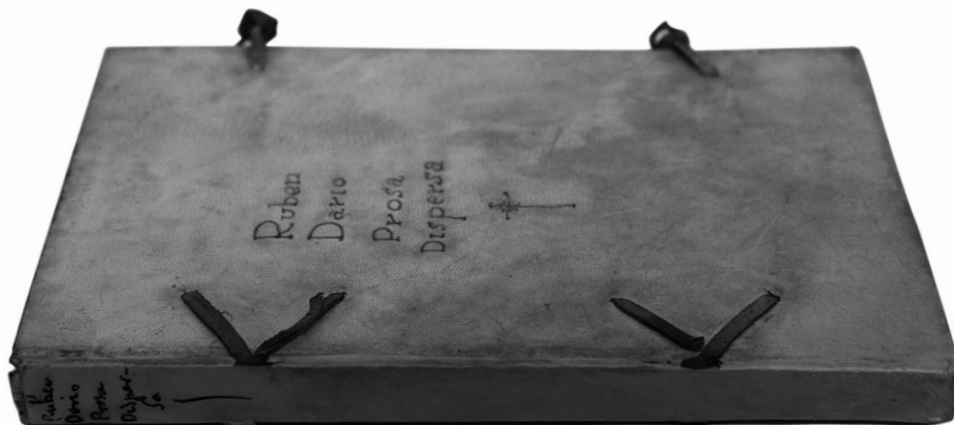 Ruben
Dario
Prosa
Dispersa
Ruben
Dario
Prosa
Disper-
sa